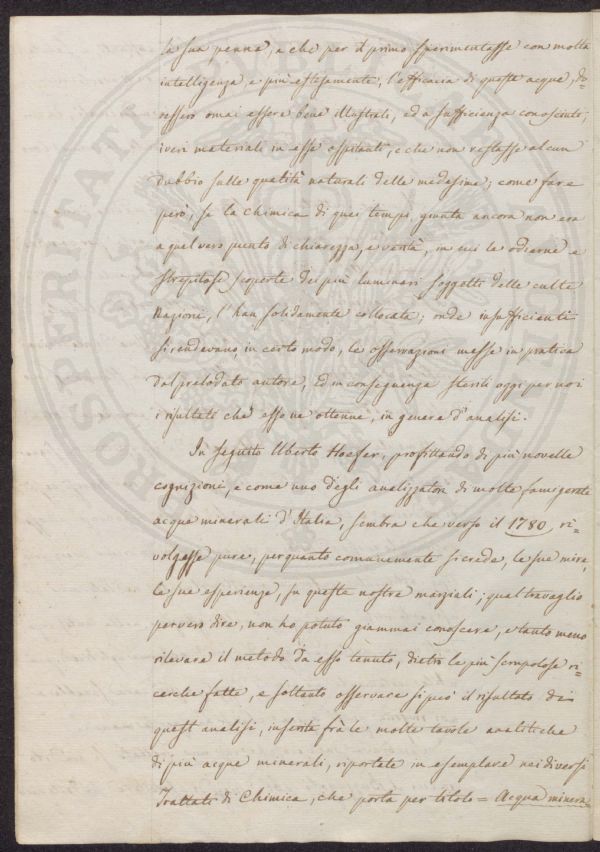 la sua penna, e che per il primo sperimentasse con molta
intelligenza e più estesamente, l'efficacia di queste acque, do=
vessero omai essere bene illustrati, ed a sufficienza conosciuti;
i veri materiali in esse ospitanti, e che non restasse alcun
dubbio sulle qualità naturali delle medesime; come fare
però, se la chimica di quei tempi, giunta ancora non era
a quel vero punto di chiarezza, e verità, in cui le odierne e
strepitose scoperte dei più luminari soggetti delle culte
Nazioni, l'han solidamente collocata; onde insufficienti
si rendevano, in certo modo, le osservazioni messe in pratica
dal prelodato autore, ed in conseguenza sterili oggi per noi
i risultati che esso ne ottenne, in genere d'analisi.
In seguito Uberto Hoefer, profittando di più novelle
cognizioni, e come uno degli analizzatori di molte famigerate
acque minerali d'Italia, sembra che verso il 1780, ri=
volgesse pure, per quanto comunemente si crede, le sue mire,
le sue esperienze, su queste nostre marziali; qual travaglio
per vero dire, non ho potuto giammai conoscere, e tanto meno
rilevare il metodo da esso tenuto, dietro le più scrupolose ri=
cerche fatte, e soltanto osservare si può il risultato di
quest analisi, inserita frà le molte tavole analitiche
di più acque minerali, riportate in esemplare nei diversi
Trattati di Chimica, che porta per titolo = Acqua minera
PROSPERITATI PUBLICAE